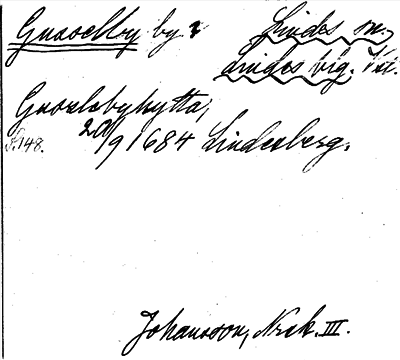 Gusselby by Lindes sn.,
Lindes blg. Vstm.
Guselebyhytta,
S. 148. 20/9 1684 Lindesberg.
Johansson, Nrk. III.